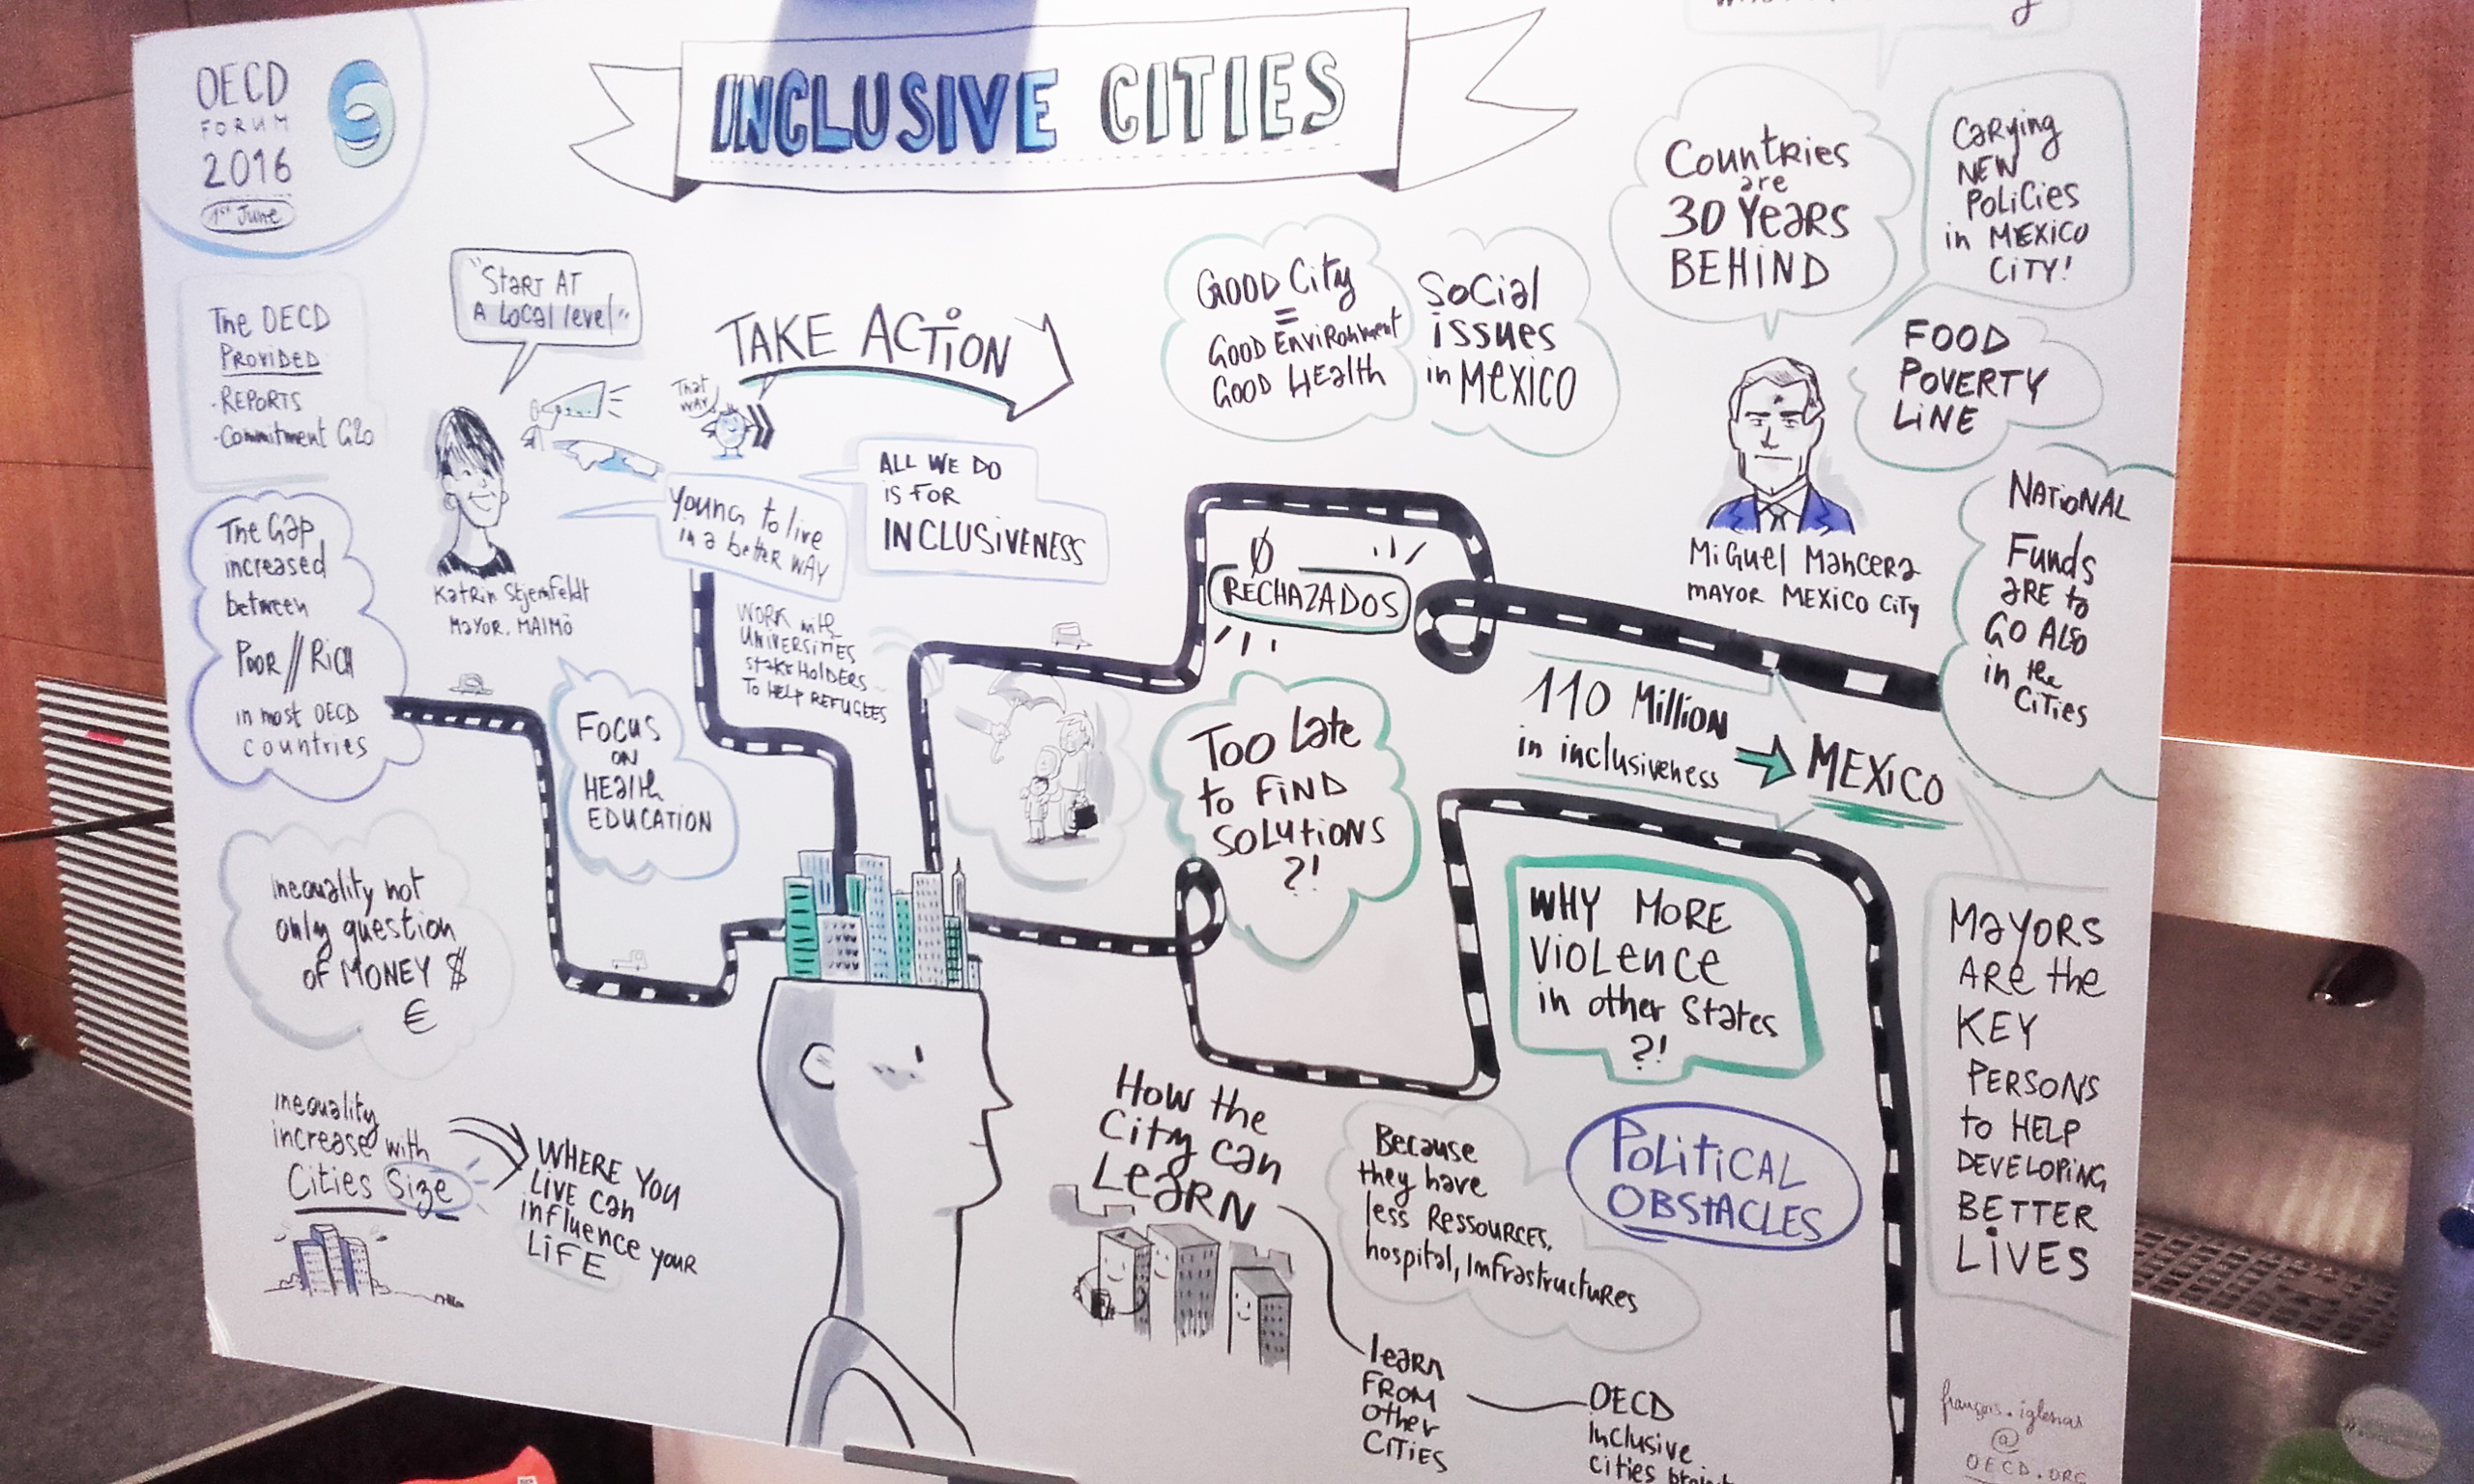 OECD
FORUM
2016
1st June
INCLUSIVE CITIES
The OECD
PROVIDED
- REPORTS
- Commitment G20
"START AT
A Local level"
That
WAY
TAKE ACTION
Katrin Stjernfeldt
Mayor, MALMÖ
Young to live
in a better WAY
ALL WE DO
is FOR
INCLUSIVENESS
WORK with
UNIVERSITIES
STAKEHOLDERS
TO HELP REFUGEES
The Gap
increased
between
POOR // RICH
in most OECD
countries
FOCUS
ON
HEALTH
EDUCATION
Inequality not
only question
OF MONEY $
€
inequality
increase with
Cities Size
WHERE YOU
LIVE can
influence your
LIFE
GOOD City
=
GOOD ENVIRONMENT
GOOD HEALTH
Social
issues
in MEXICO
Countries
are
30 Years
BEHIND
CaRying
NEW
POLICIES
in MEXICO
CITY!
FOOD
POVERTY
LINE
MIGUEL MANCERA
MAYOR MEXICO CITY
NATIONAL
Funds
ARE to
GO ALSO
in the
CITIES
Ø
RECHAZADOS
110 Million
in inclusiveness
MEXICO
TOO Late
to FIND
SOLUTIONS
?!
WHY MORE
VIOLENCE
in other States
?!
Because
they have
less RESSOURCES,
hospital, Infrastructures
POLITICAL
OBSTACLES
MAYORS
ARE the
KEY
PERSONS
to HELP
DEVELOPING
BETTER
LIVES
How the
City can
LEARN
learn
FROM
other
CITIES
OECD
Inclusive
Cities
françois.iglesias
@
OECD.ORG